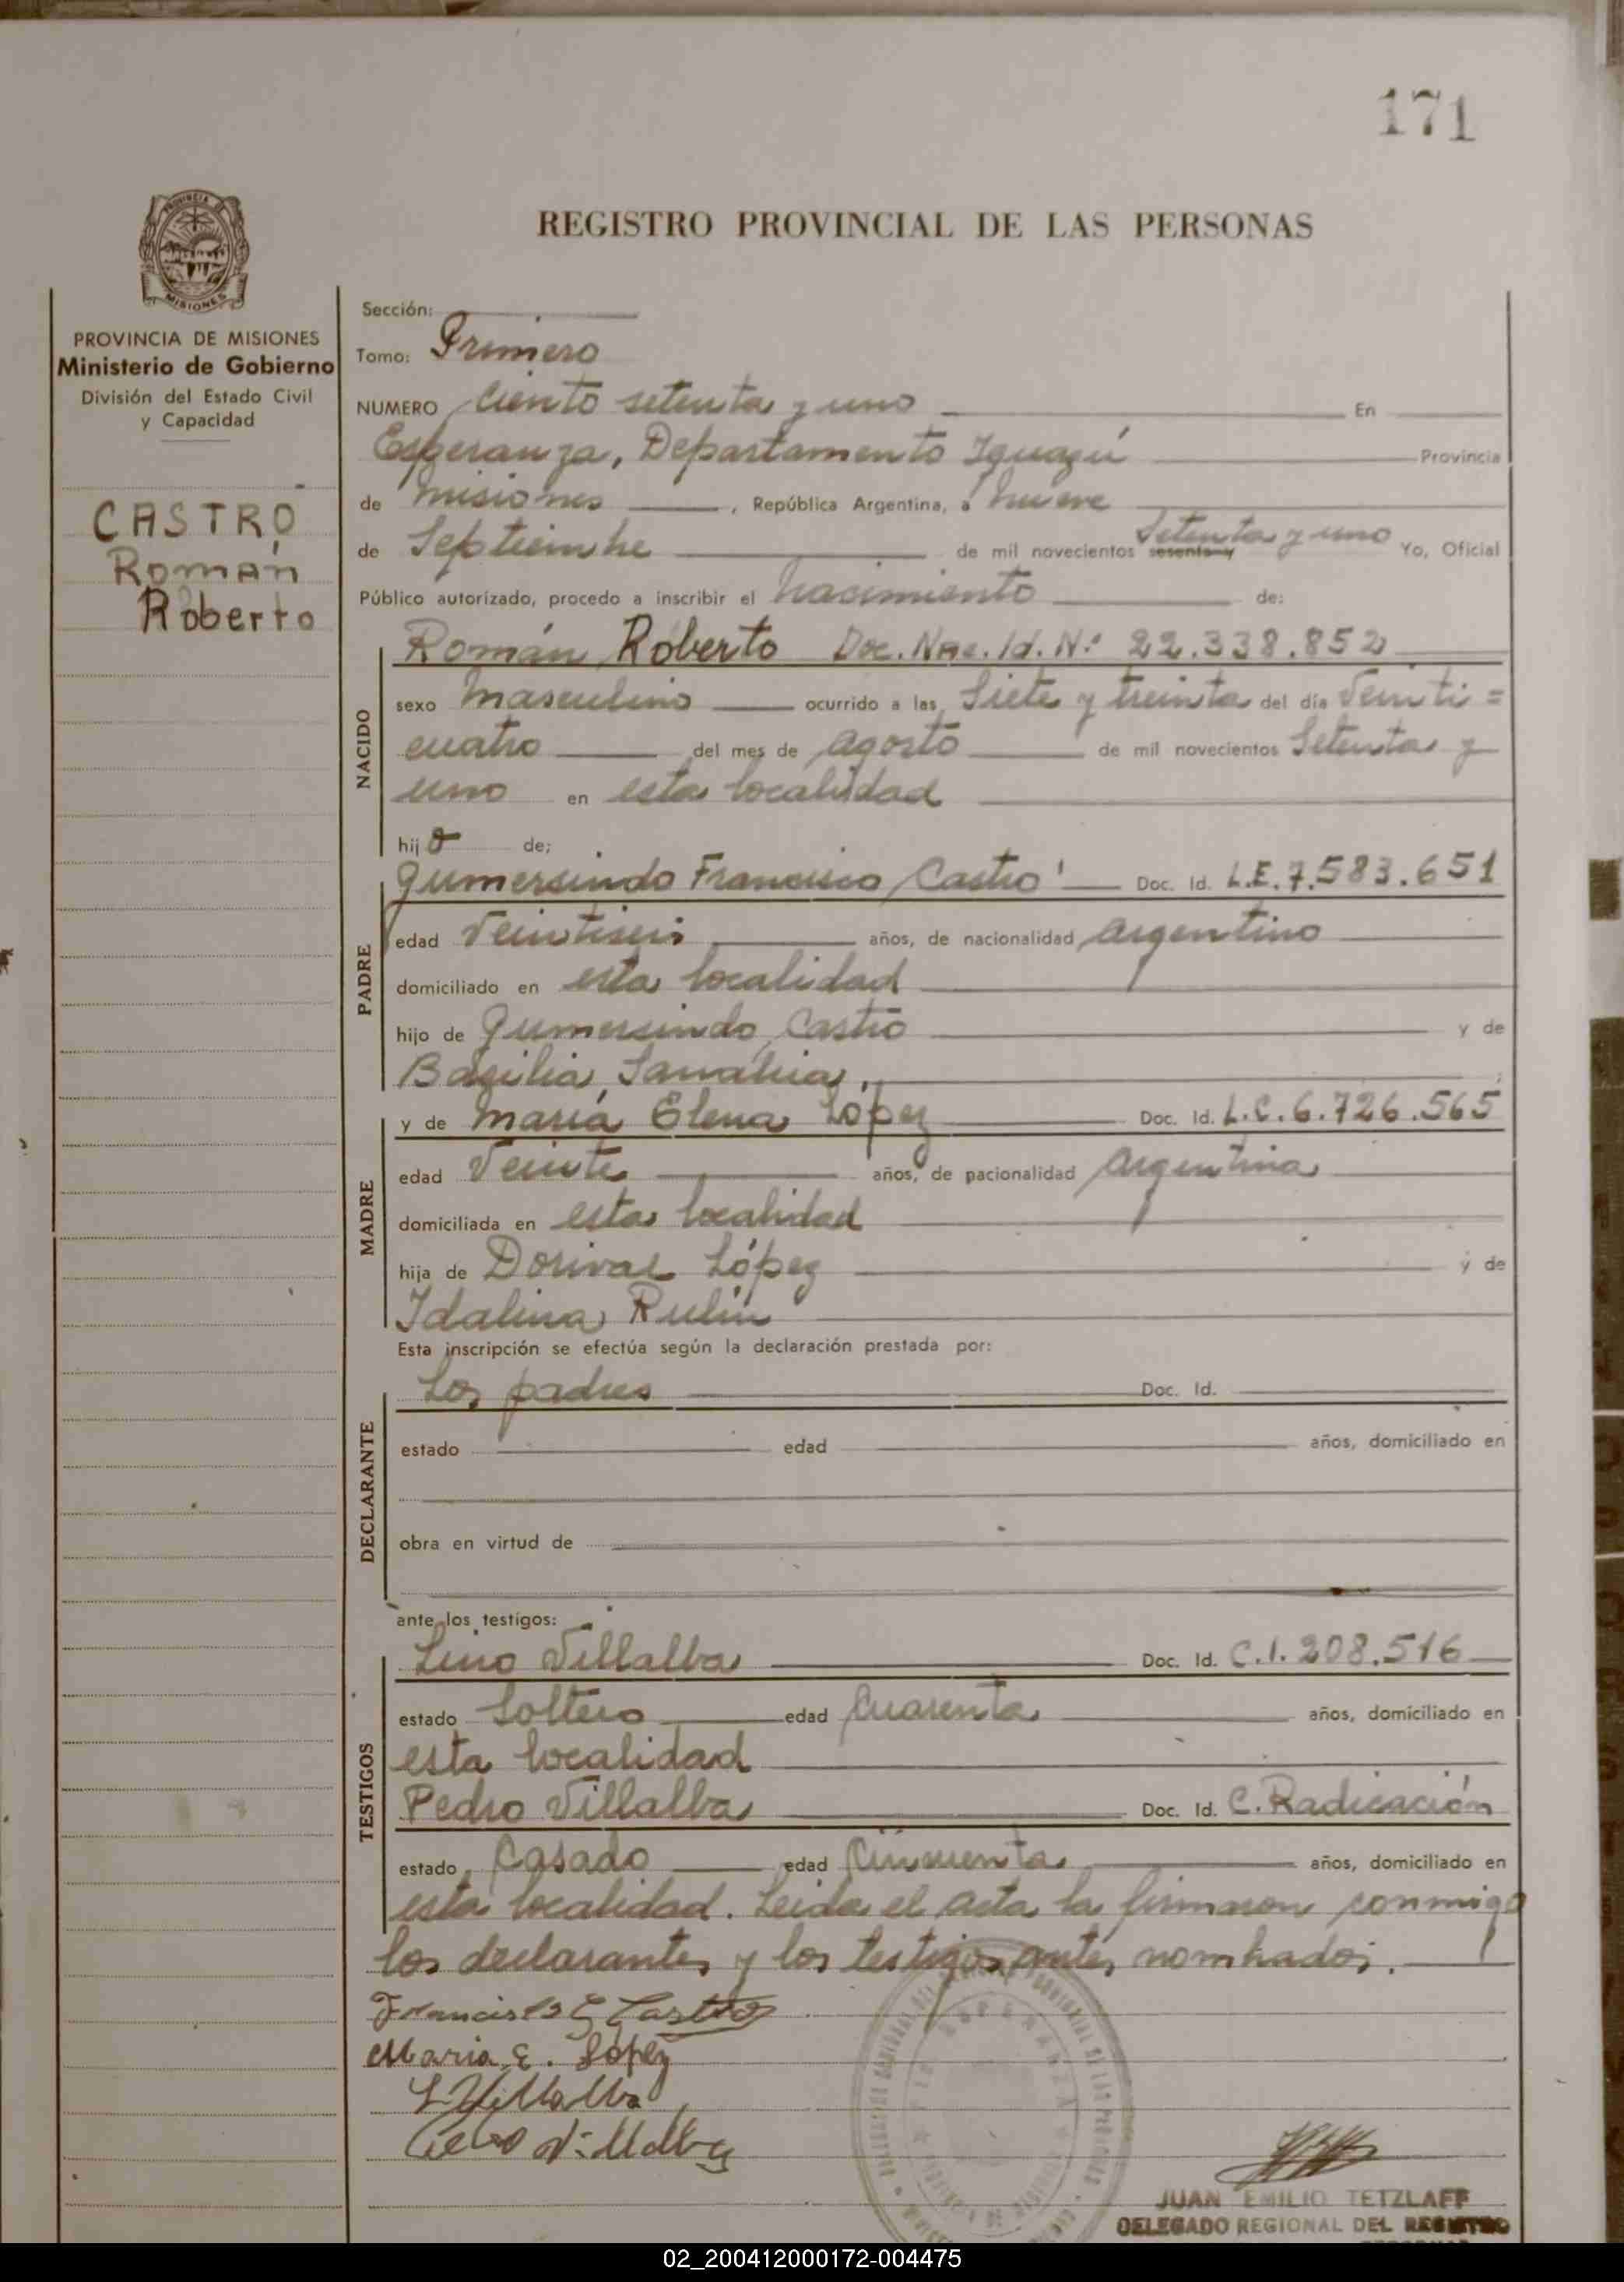 171
REGISTRO PROVINCIAL DE LAS PERSONAS
PROVINCIA DE MISIONES
Ministerio de Gobierno
División del Estado Civil
y Capacidad
CASTRO
Román
Roberto
Sección:
Tomo: Primero
NUMERO Ciento setenta y uno En
Esperanza, Departamento Iguazú Provincia
de Misiones, República Argentina, a nueve
de Septiembre de mil novecientos sesenta y Setenta y uno Yo, Oficial
Público autorizado, procedo a inscribir el nacimiento de:
NACIDO
Román Roberto Doc. Nac. Id. N° 22.338.852
sexo Masculino ocurrido a las Siete y treinta del día Veinti=
cuatro del mes de agosto de mil novecientos Setenta y
uno en esta localidad
hijo de;
PADRE
Gumersindo Francisco Castro Doc. Id. L.E.7.583.651
edad Veintiseis años, de nacionalidad argentino
domiciliado en esta localidad
hijo de Gumersindo Castro y de
Basilia Sanabria,
MADRE
y de María Elena López Doc. Id. L.C.6.726.565
edad Veinte años, de nacionalidad argentina
domiciliada en esta localidad
hija de Dorival López y de
Idalina
Esta inscripción se efectúa según la declaración prestada por:
DECLARANTE
Los padres Doc. Id.
estado edad años, domiciliado en
obra en virtud de
ante los testigos:
TESTIGOS
Lino Villalba Doc. Id. C.I. 208.516
estado Soltero edad Cuarenta años, domiciliado en
esta localidad
Pedro Villalba Doc. Id. C. Radicación
estado Casado edad Cincuenta años, domiciliado en
esta localidad. Leida el acta la firmaron conmigo
los declarantes y los testigos antes nombrados.
Francisco G Castro
Maria E. López
L Villalba
Villalba
JUAN EMILIO TETZLAFF
DELEGADO REGIONAL DEL REGISTRO
02_200412000172-004475